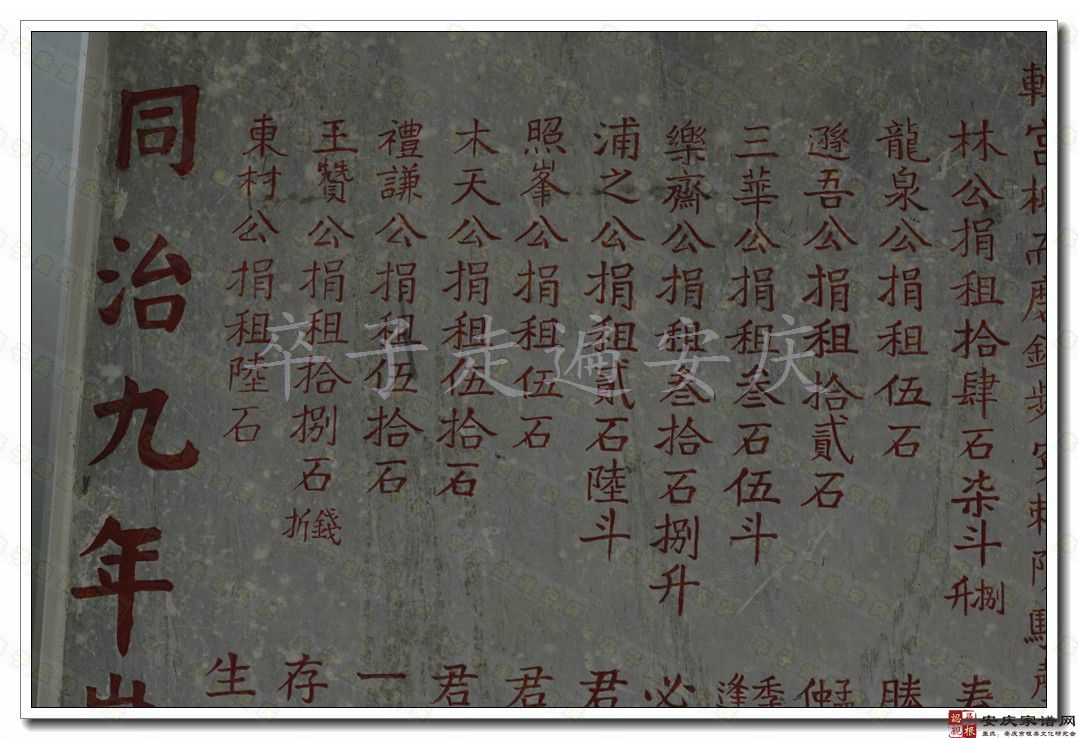 林公捐租拾肆石柒斗捌升
龍泉公捐租伍石
遜吾公捐租拾貳石
三華公捐租叁石伍斗
樂齋公捐租叁拾石捌升
浦之公捐租貳石陸斗
照峯公捐租伍石
木天公捐租伍拾石
禮謙公捐租伍拾石
王贊公捐租拾捌石折錢
東村公捐租陸石
勝
孟仙
季逢
必
君
君
君
一
存
生
同治九年
卒子走遍安庆
安庆家谱网